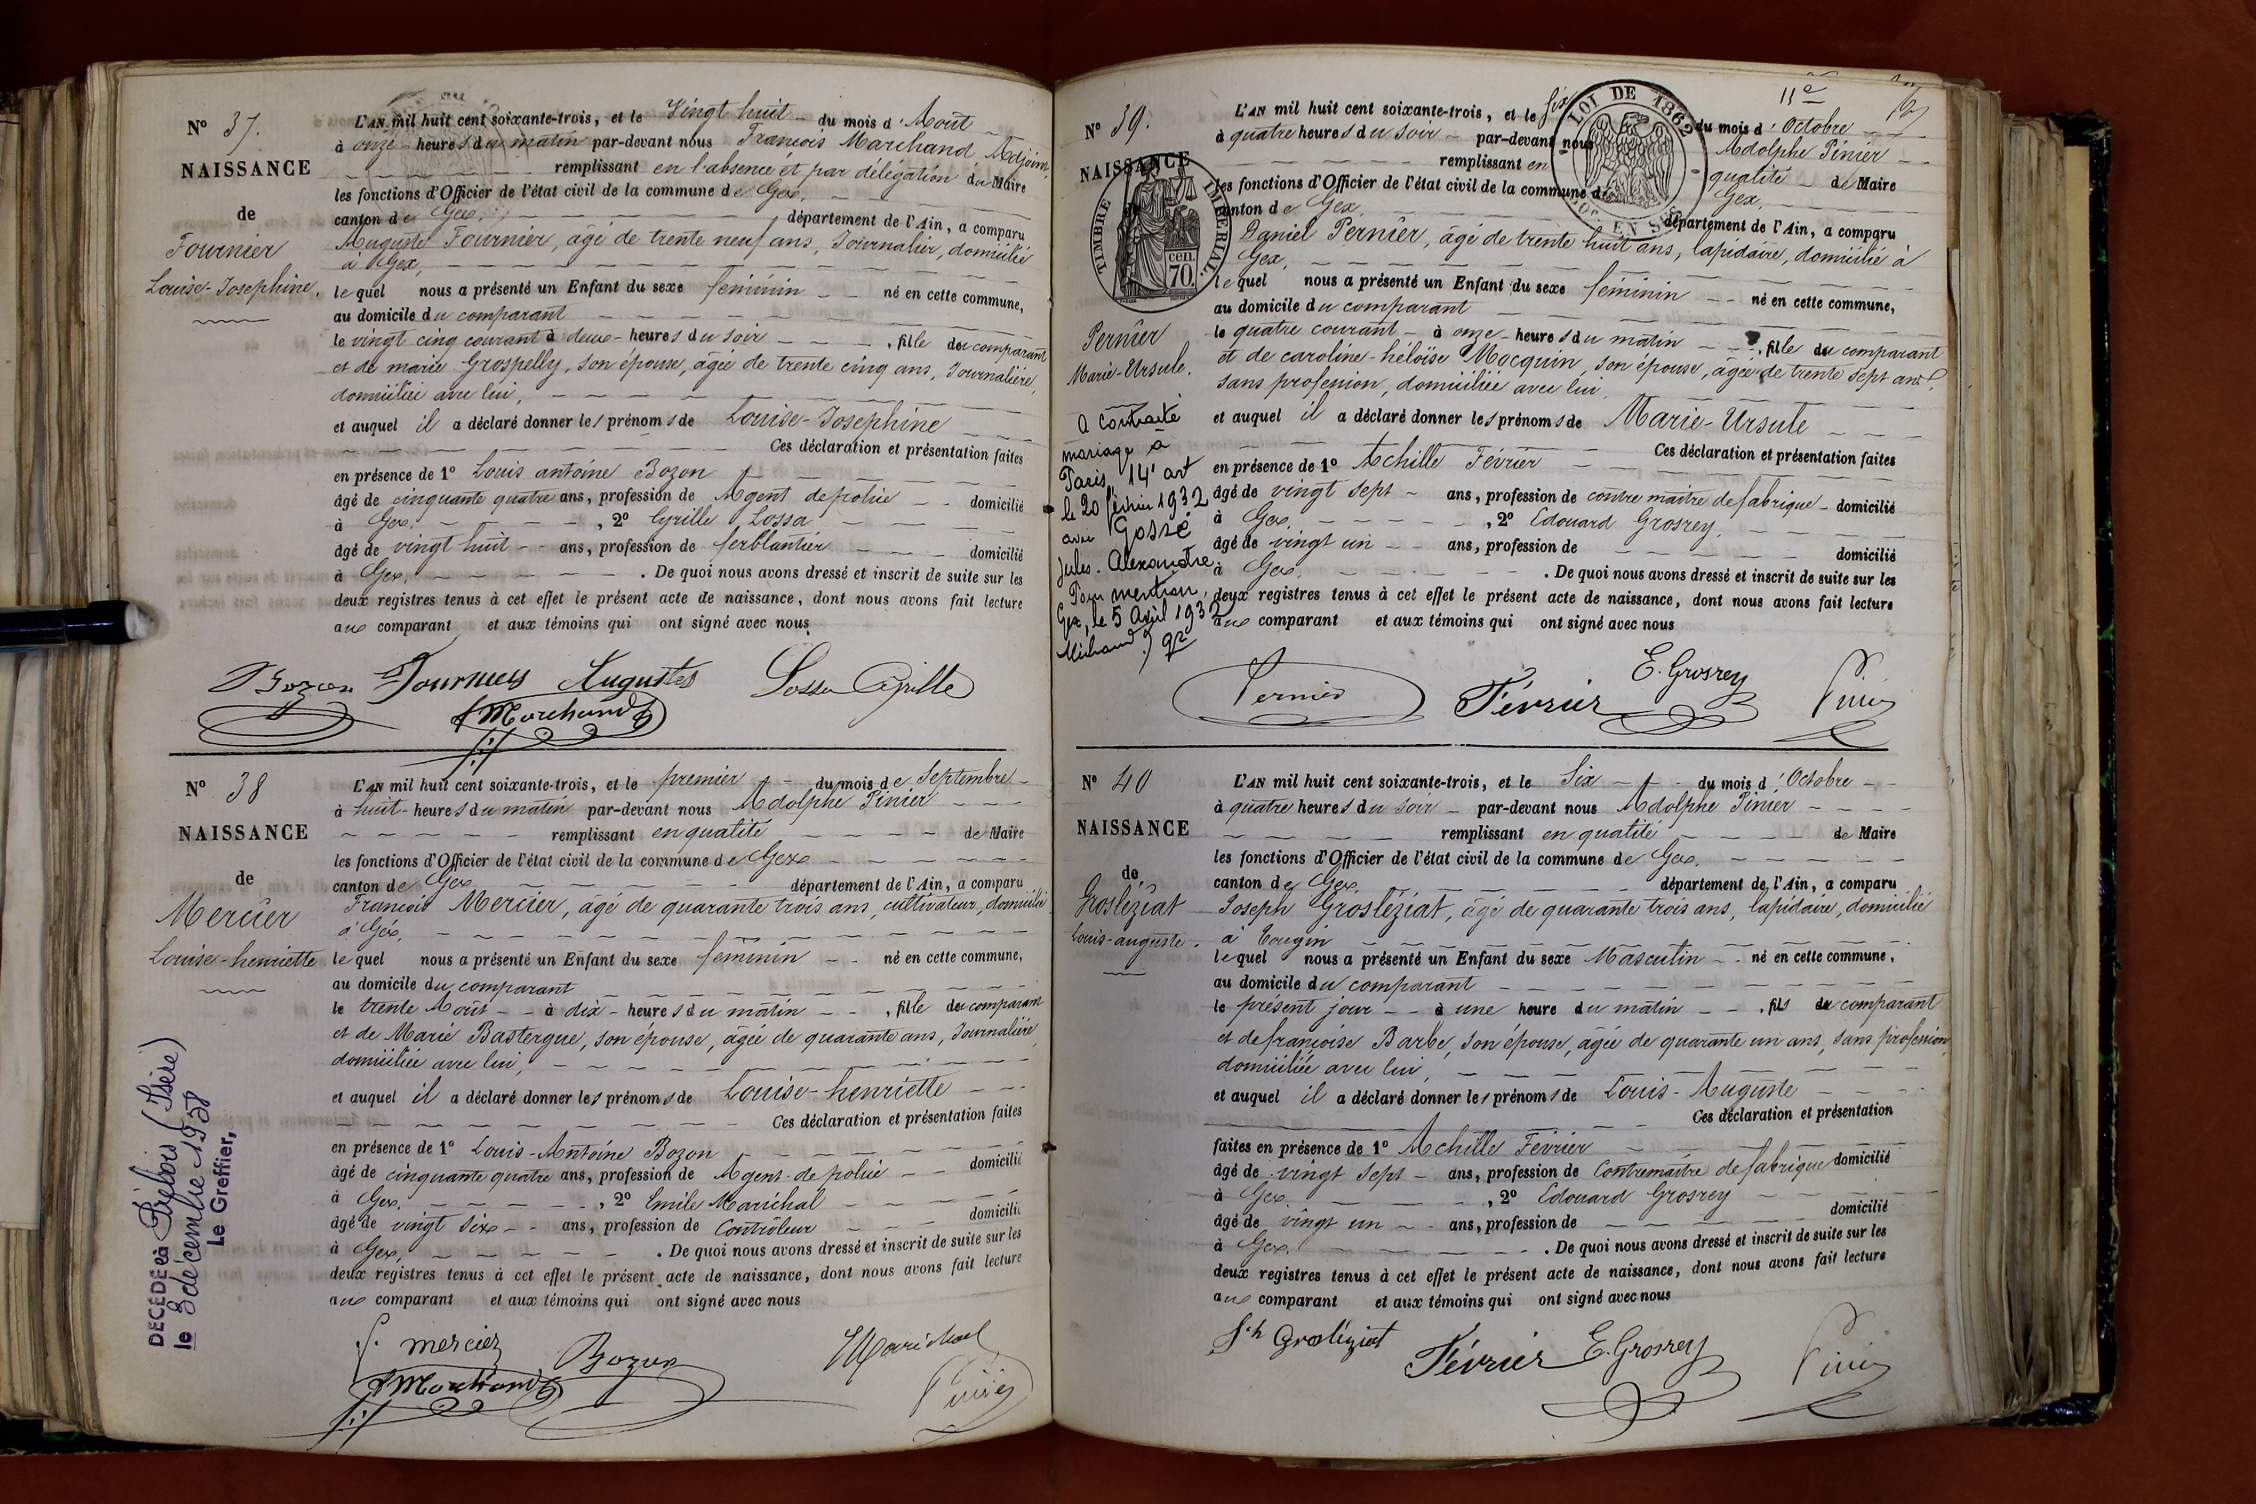 N° 37.
NAISSANCE
de
Fournier
Louise-Josephine.
L'AN mil huit cent soixante-trois, et le Vingt huit du mois d'Août
à onze heures du matin par-devant nous François Marchand Adjoint
remplissant en l'absence et par délégation du Maire
les fonctions d'Officier de l'état civil de la commune de Gex.
canton de Gex. département de l'Ain, a comparu
Auguste Fournier, âgé de trente neuf ans, Journalier, domicilié
à Gex,
lequel nous a présenté un Enfant du sexe féminin né en cette commune,
au domicile du comparant
le vingt cinq courant à deux heures du soir, fille du comparant
et de marie Grospelly, son épouse, âgée de trente cinq ans, Journalière,
domiciliée avec lui,
et auquel il a déclaré donner les prénoms de Louise-Josephine
Ces déclaration et présentation faites
en présence de 1° Louis antoine Bozon
âgé de cinquante quatre ans, profession de Agent de police domicilié
à Gex. , 2° Cyrille Lossa
âgé de vingt huit ans, profession de ferblantier domicilié
à Gex. . De quoi nous avons dressé et inscrit de suite sur les
deux registres tenus à cet effet le présent acte de naissance, dont nous avons fait lecture
aux comparant et aux témoins qui ont signé avec nous.
Bozon Fournier Auguste Lossa Cyrille
Marchand
N° 38
NAISSANCE
de
Mercier
Louise-henriette
DÉCÉDÉE à Prébois (Isère)
le 3 décembre 1958
Le Greffier,
L'AN mil huit cent soixante-trois, et le premier du mois de Septembre
à huit heures du matin par-devant nous Adolphe Pinier
remplissant en qualité de Maire
les fonctions d'Officier de l'état civil de la commune de Gex
canton de Gex département de l'Ain, a comparu
François Mercier, âgé de quarante trois ans, cultivateur, domicilié
à Gex.
lequel nous a présenté un Enfant du sexe féminin né en cette commune,
au domicile du comparant
le trente Août à dix heures du matin , fille du comparant
et de Marie Bastergue, son épouse, âgée de quarante ans, Journalière,
domiciliée avec lui,
et auquel il a déclaré donner les prénoms de Louise-henriette
Ces déclaration et présentation faites
en présence de 1° Louis-Antoine Bozon
âgé de cinquante quatre ans, profession de Agent de police domicilié
à Gex. , 2° Emile Maréchal
âgé de vingt six ans, profession de Contrôleur domicilié
à Gex. . De quoi nous avons dressé et inscrit de suite sur les
deux registres tenus à cet effet le présent acte de naissance, dont nous avons fait lecture
aux comparant et aux témoins qui ont signé avec nous
f. mercier Bozon EMaréchal
Marchand Pinier
N° 39.
NAISSANCE
TIMBRE IMPÉRIAL.
cen.
70.
LOI DE 1862
EN SUS
11e
Pernier
Marie-Ursule.
a contracté
mariage à
Paris, 14e art
le 20 février 1932
avec Gossé
Jules. Alexandre
Pour mention,
Gex, le 5 Avril 1932
L'AN mil huit cent soixante-trois, et le six du mois d'Octobre
à quatre heures du soir par-devant nous Adolphe Pinier
remplissant en qualité de Maire
les fonctions d'Officier de l'état civil de la commune de Gex.
canton de Gex. département de l'Ain, a comparu
Daniel Pernier, âgé de trente huit ans, lapidaire, domicilié à
Gex.
lequel nous a présenté un Enfant du sexe féminin né en cette commune,
au domicile du comparant
le quatre courant à onze heures du matin , fille du comparant
et de caroline-héloïse Mocquin, son épouse, âgée de trente sept ans,
sans profession, domiciliée avec lui
et auquel il a déclaré donner les prénoms de Marie-Ursule
Ces déclaration et présentation faites
en présence de 1° Achille Février
âgé de vingt sept ans, profession de contre maître de fabrique domicilié
à Gex. , 2° Edouard Grosrey.
âgé de vingt un ans, profession de domicilié
à Gex. . De quoi nous avons dressé et inscrit de suite sur les
deux registres tenus à cet effet le présent acte de naissance, dont nous avons fait lecture
aux comparant et aux témoins qui ont signé avec nous
Pernier Février E. Grosrey Pinier
N° 40
NAISSANCE
de
Grosléziat
Louis-auguste.
L'AN mil huit cent soixante-trois, et le Six du mois d'Octobre
à quatre heures du soir par-devant nous Adolphe Pinier
remplissant en qualité de Maire
les fonctions d'Officier de l'état civil de la commune de Gex.
canton de Gex département de l'Ain, a comparu
Joseph Grosléziat, âgé de quarante trois ans, lapidaire, domicilié
à Tougin
lequel nous a présenté un Enfant du sexe Masculin né en cette commune,
au domicile du comparant
le présent jour à une heure du matin , fils du comparant
et de françoise Barbe, son épouse, âgée de quarante un ans, sans profession,
domiciliée avec lui,
et auquel il a déclaré donner les prénoms de Louis-Auguste
Ces déclaration et présentation
faites en présence de 1° Achille Février
âgé de vingt sept ans, profession de Contremaître de fabrique domicilié
à Gex. , 2° Edouard Grosrey
âgé de vingt un ans, profession de domicilié
à Gex. . De quoi nous avons dressé et inscrit de suite sur les
deux registres tenus à cet effet le présent acte de naissance, dont nous avons fait lecture
aux comparant et aux témoins qui ont signé avec nous
Jh Grosléziat Février E. Grosrey Pinier